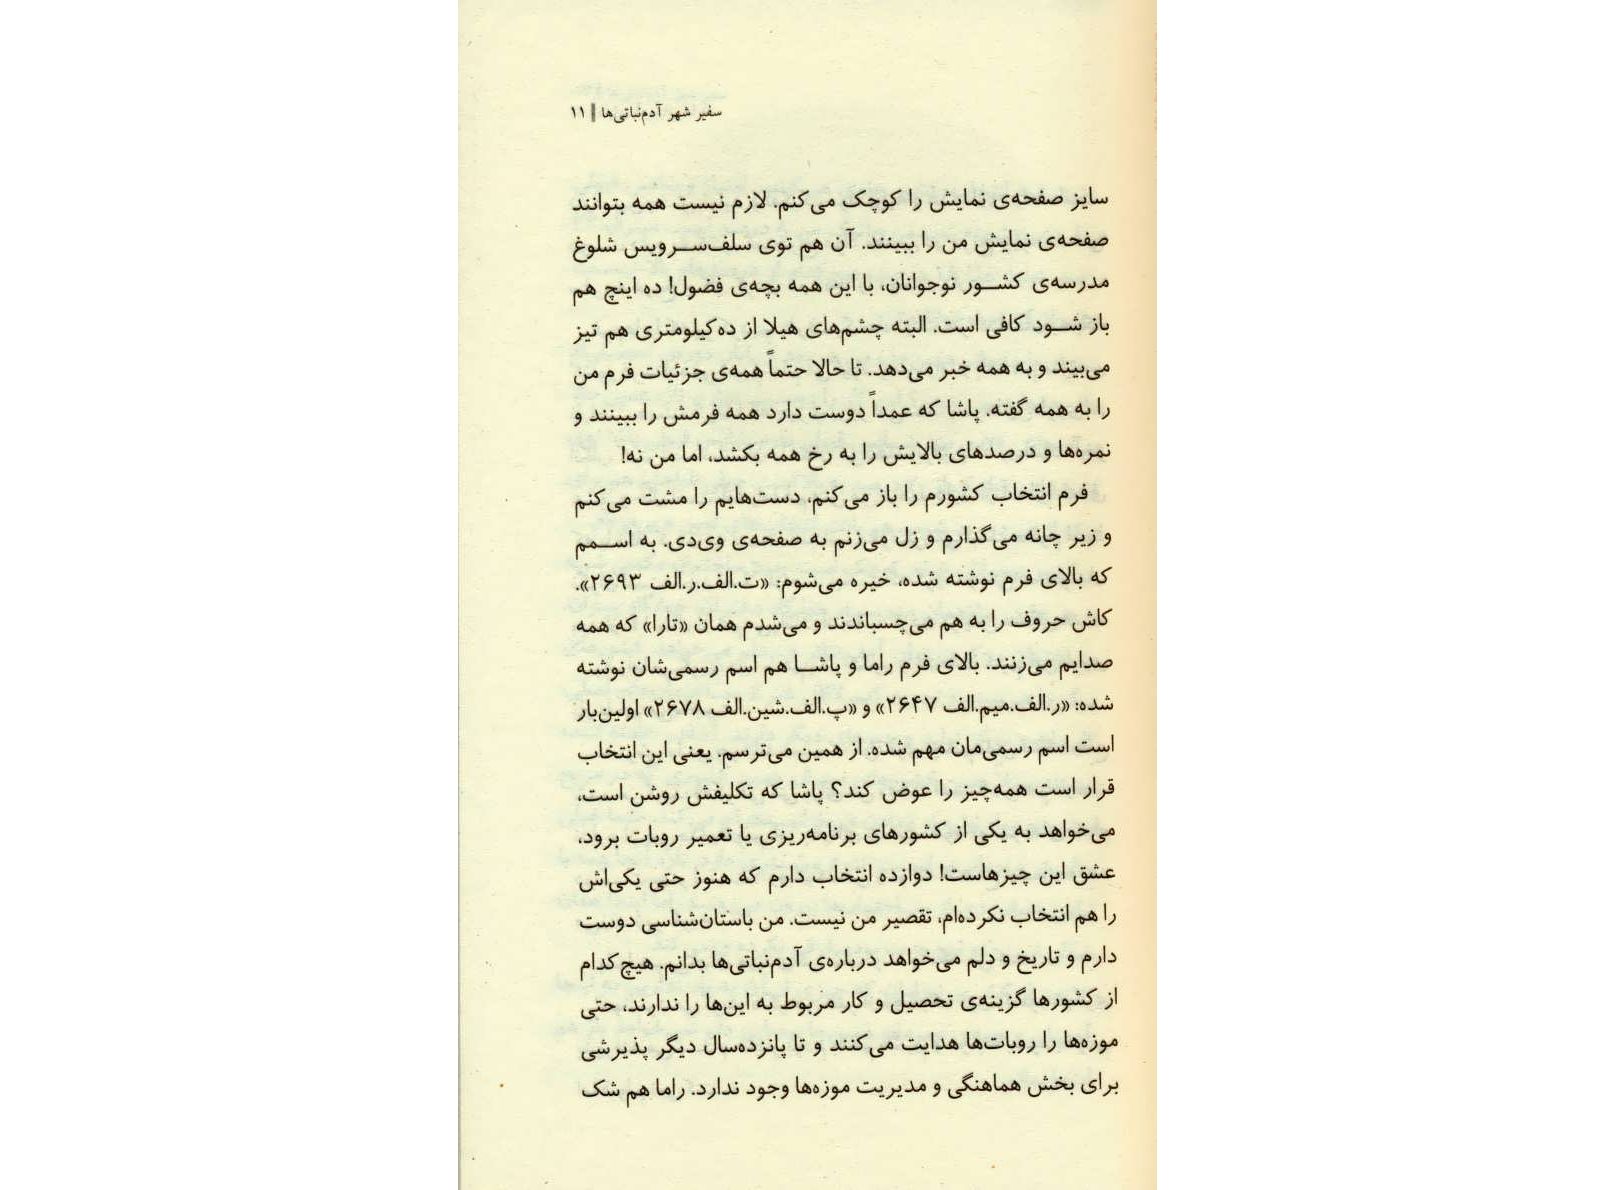 سفیر شهر آدم‌نباتی‌ها || ۱۱
سایز صفحه‌ی نمایش را کوچک می‌کنم. لازم نیست همه بتوانند
صفحه‌ی نمایش من را ببینند. آن هم توی سلف‌سرویس شلوغ
مدرسه‌ی کشور نوجوانان، با این همه بچه‌ی فضول! ده اینچ هم
باز شود کافی است. البته چشم‌های هیلا از ده‌کیلومتری هم تیز
می‌بیند و به همه خبر می‌دهد. تا حالا حتماً همه‌ی جزئیات فرم من
را به همه گفته. پاشا که عمداً دوست دارد همه فرمش را ببینند و
نمره‌ها و درصدهای بالایش را به رخ همه بکشد، اما من نه!
فرم انتخاب کشورم را باز می‌کنم، دست‌هایم را مشت می‌کنم
و زیر چانه می‌گذارم و زل می‌زنم به صفحه‌ی وی‌دی. به اسمم
که بالای فرم نوشته شده، خیره می‌شوم: «ت.الف.ر.الف ۲۶۹۳».
کاش حروف را به هم می‌چسباندند و می‌شدم همان «تارا» که همه
صدایم می‌زنند. بالای فرم راما و پاشا هم اسم رسمی‌شان نوشته
شده: «ر.الف.میم.الف ۲۶۴۷» و «پ.الف.شین.الف ۲۶۷۸» اولین‌بار
است اسم رسمی‌مان مهم شده. از همین می‌ترسم. یعنی این انتخاب
قرار است همه‌چیز را عوض کند؟ پاشا که تکلیفش روشن است،
می‌خواهد به یکی از کشورهای برنامه‌ریزی یا تعمیر روبات برود،
عشق این چیزهاست! دوازده انتخاب دارم که هنوز حتی یکی‌اش
را هم انتخاب نکرده‌ام، تقصیر من نیست. من باستان‌شناسی دوست
دارم و تاریخ و دلم می‌خواهد درباره‌ی آدم‌نباتی‌ها بدانم. هیچ‌کدام
از کشورها گزینه‌ی تحصیل و کار مربوط به این‌ها را ندارند، حتی
موزه‌ها را روبات‌ها هدایت می‌کنند و تا پانزده‌سال دیگر پذیرشی
برای بخش هماهنگی و مدیریت موزه‌ها وجود ندارد. راما هم شک